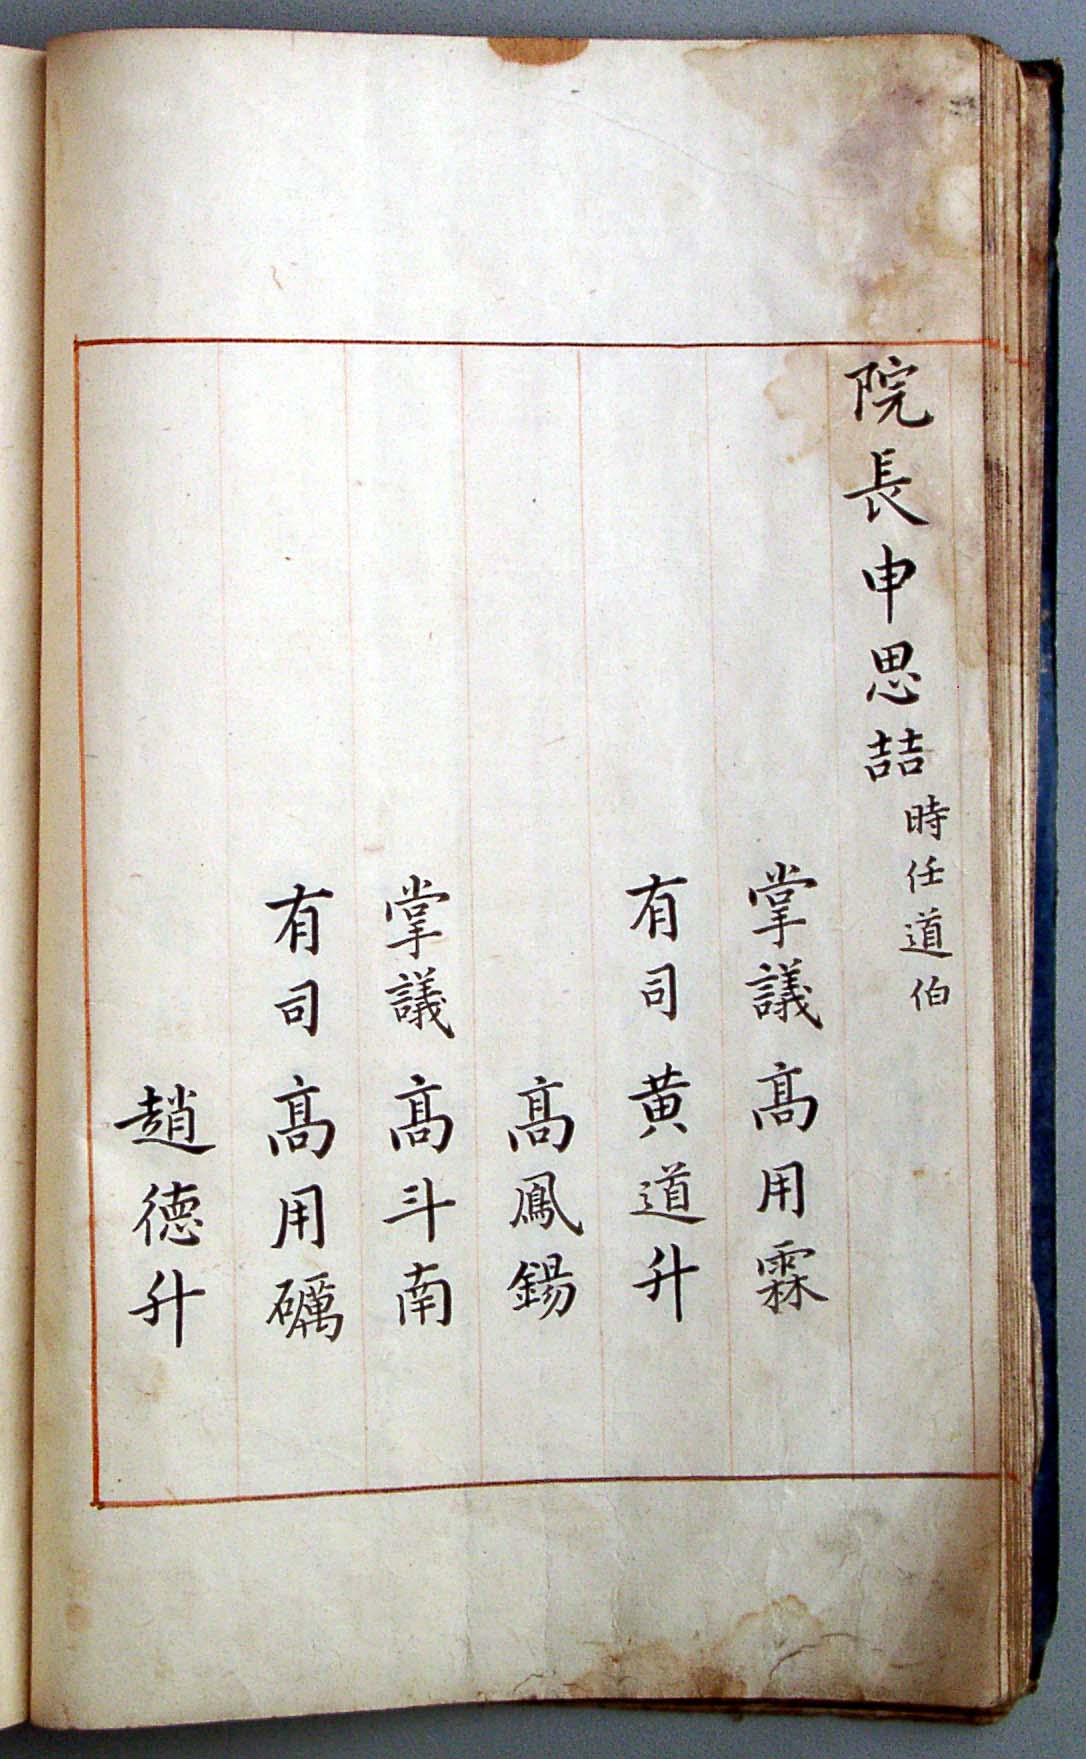 院長申思喆時任道伯
掌議髙用霖
有司黄道升
髙鳳錫
掌議髙斗南
有司髙用礪
趙德升